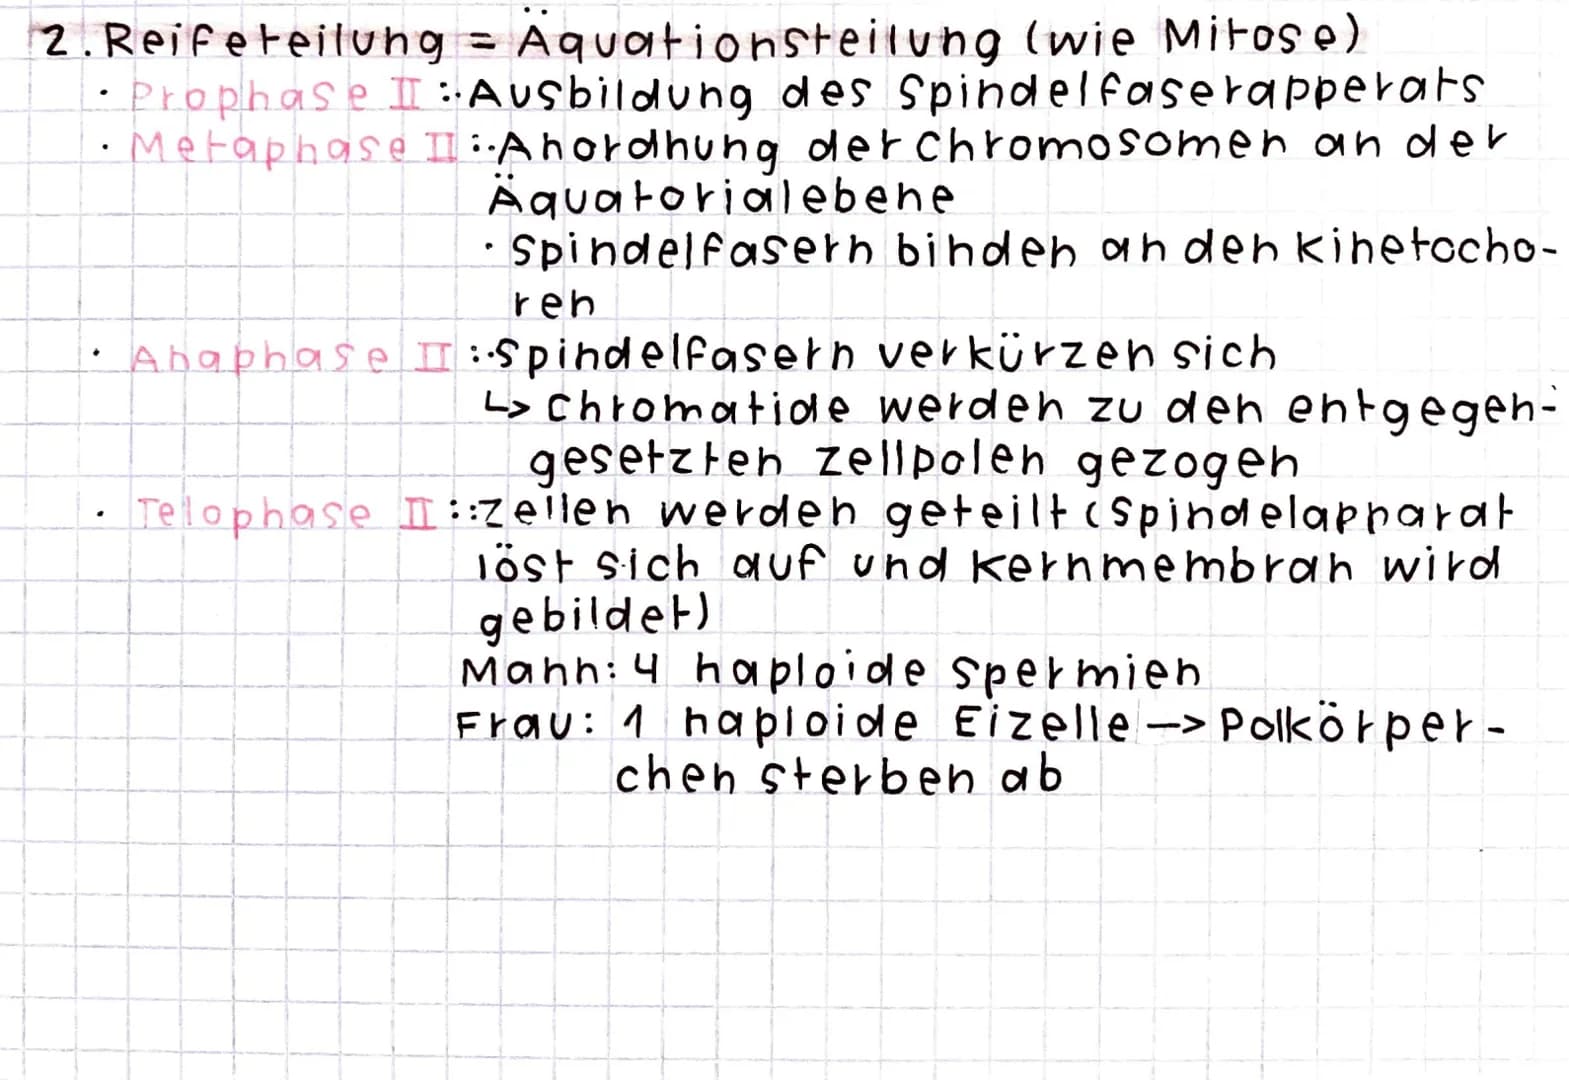 2. Reifeteilung = Äquationsteilung (wie Mitose)
· Prophase II :· Ausbildung des Spindelfaserapperats
· Metaphase II :· Anordnung der Chromosomen an der
Äquatorialebene
· Spindelfasern binden an den Kinetocho-
ren
· Anaphase II :· Spindelfasern verkürzen sich
↳ Chromatide werden zu den entgegen-
gesetzten Zellpolen gezogen
· Telophase II :· Zellen werden geteilt (Spindelapparat
löst sich auf und Kernmembran wird
gebildet)
Mann: 4 haploide Spermien
Frau: 1 haploide Eizelle —> Polkörper-
chen sterben ab